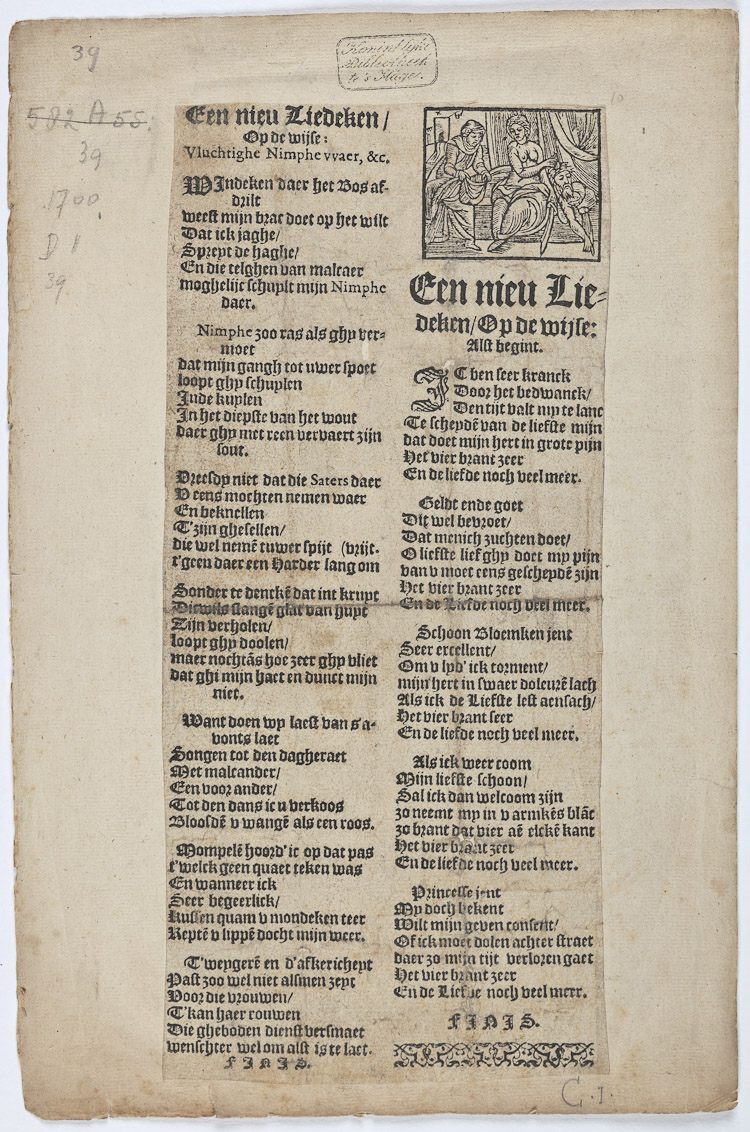 39
Koninklijke
Bibliotheek
te 's Hage.
582 A 55.
39
1700
D 1
39
Een nieu Liedeken/
Op de wijse:
Vluchtighe Nimphe vvaer, &c.
WIndeken daer het Bos af-
drilt
weest mijn brac doet op het wilt
Dat ick jaghe/
Spreyt de haghe/
En die telghen van malcaer
moghelijc schuylt mijn Nimphe
daer.
Nimphe zoo ras als ghy ver-
moet
dat mijn gangh tot uwer spoet
loopt ghy schuylen
Inde kuylen
In het diepste van het wout
daer ghy met reen vervaert zijn
sout.
Vreesdy niet dat die Saters daer
V eens mochten nemen waer
En beknellen
T'zijn ghesellen/
die wel nemē tuwer spijt (vrijt.
t'geen daer een Harder lang om
Sonder te denckē dat int kruyt
Dicwils slangē glat van huyt
Zijn verholen/
loopt ghy doolen/
maer nochtās hoe zeer ghy vliet
dat ghi mijn hact en dunct mijn
niet.
Want doen wy laest van s'a-
vonts laet
Songen tot den dagheraet
Met malcander/
Een voor ander/
Tot den dans ic u verkoos
Bloosdē v wangē als een roos.
Mompelē hoord' ic op dat pas
t'welck geen quaet teken was
En wanneer ick
Seer begeerlick/
Kussen quam v mondeken teer
Reptē v lippē docht mijn weer.
T'weygerē en d'afkericheyt
Past zoo wel niet alsmen zeyt
Voor die vrouwen/
T'kan haer rouwen
Die gheboden dienst versmaet
wenschter wel om alst is te laet.
FINIS.
Een nieu Lie-
deken/Op de wijse:
Alst begint.
IC ben seer kranck
Door het bedwanck/
Den tijt valt my te lanc
Te scheydē van de liefste mijn
dat doet mijn hert in grote pijn
Het vier brant zeer
En de liefde noch veel meer.
Geldt ende goet
Dit wel bevroet/
Dat menich zuchten doet/
O liefste lief ghy doet my pijn
van v moet eens gescheydē zijn
Het vier brant zeer
En de Liefde noch veel meer.
Schoon Bloemken jent
Seer excellent/
Om v lyd' ick torment/
mijn hert in swaer doleurē lach
Als ick de Liefste lest aensach/
Het vier brant seer
En de liefde noch veel meer.
Als ick weer coom
Mijn liefste schoon/
Sal ick dan welcoom zijn
zo neemt my in v armkēs blāc
zo brant dat vier aē elckē kant
Het vier brant zeer
En de liefde noch veel meer.
Princesse jent
My doch bekent
Wilt mijn geven consent/
Of ick moet dolen achter straet
daer zo mijn tijt verloren gaet
Het vier brant zeer
En de Liefde noch veel meer.
FINIS.
C. 1.